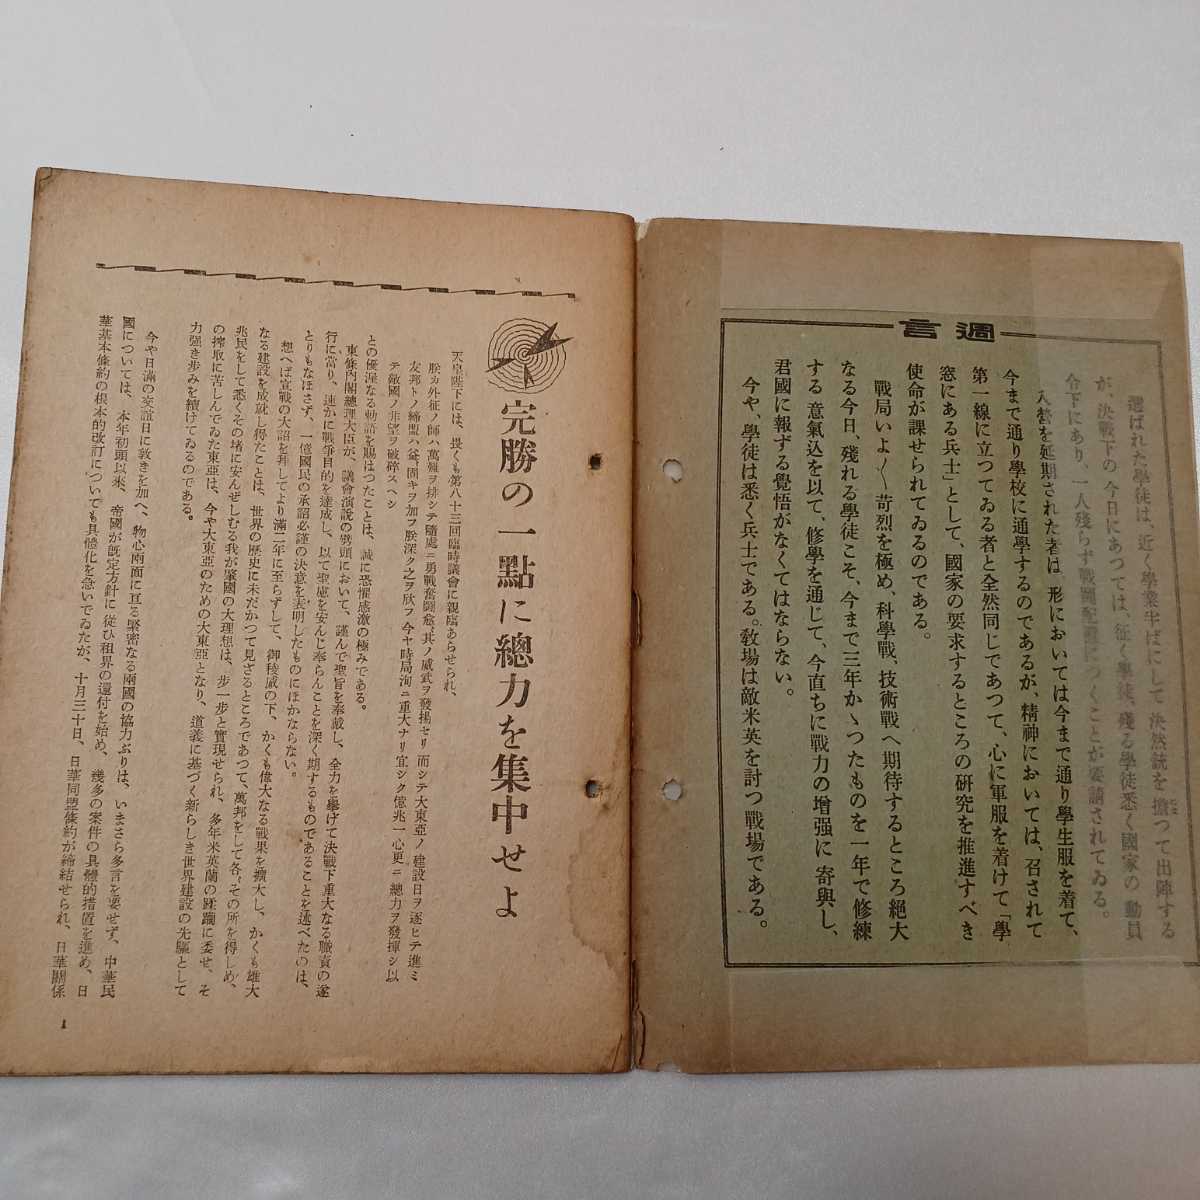 週言
選ばれた學徒は、近く學業半ばにして決然銃を擔つて出陣する
が、決戰下の今日にあつては、征く學徒、殘る學徒悉く國家の動員
令下にあり、一人殘らず戰鬪配置につくことが要請されてゐる。
入營を延期された者は、形においては今まで通り學生服を着て、
今まで通り學校に通學するのであるが、精神においては、召されて
第一線に立つてゐる者と全然同じであつて、心に軍服を着けて「學
窓にある兵士」として、國家の要求するところの研究を推進すべき
使命が課せられてゐるのである。
戰局いよ〱苛烈を極め、科學戰、技術戰へ期待するところ絕大
なる今日、殘れる學徒こそ、今まで三年かゝつたものを一年で修練
する意氣込を以て、修學を通じて、今直ちに戰力の增强に寄與し、
君國に報ずる覺悟がなくてはならない。
今や、學徒は悉く兵士である。敎場は敵米英を討つ戰場である。
完勝の一點に總力を集中せよ
天皇陛下には、畏くも第八十三回臨時議會に親臨あらせられ、
朕カ外征ノ師ハ萬難ヲ排シテ隨處ニ勇戰奮鬪愈〻其ノ威武ヲ發揚セリ而シテ大東亞ノ建設日ヲ逐ヒテ進ミ
友邦トノ締盟ハ益〻固キヲ加フ朕深ク之ヲ欣フ今ヤ時局洵ニ重大ナリ宜シク億兆一心更ニ總力ヲ發揮シ以
テ敵國ノ非望ヲ破碎スヘシ
との優渥なる勅語を賜はつたことは、誠に恐懼感激の極みである。
東條內閣總理大臣が、議會演說の劈頭において、謹んで聖旨を奉戴し、全力を擧げて決戰下重大なる職責の遂
行に當り、速かに戰爭目的を達成し、以て聖慮を安んじ奉らんことを深く期するものであることを述べたのは、
とりもなほさず、一億國民の承詔必謹の決意を表明したものにほかならない。
想へば宣戰の大詔を拜してより滿二年に至らずして、御稜威の下、かくも偉大なる戰果を擴大し、かくも雄大
なる建設を成就し得たことは、世界の歷史に未だかつて見ざるところであつて、萬邦をして各〻その所を得しめ、
兆民をして悉くその堵に安んぜしむる我が肇國の大理想は、步一步と實現せられ、多年米英蘭の蹂躪に委せ、そ
の搾取に苦しんでゐた東亞は、今や大東亞のための大東亞となり、道義に基づく新らしき世界建設の先驅として
力强き步みを續けてゐるのである。
今や日滿の交誼日に敦きを加へ、物心兩面に亘る緊密なる兩國の協力ぶりは、いまさら多言を要せず、中華民
國については、本年初頭以來、帝國が旣定方針に從ひ租界の還付を始め、幾多の案件の具體的措置を進め、日
華基本條約の根本的改訂についても具體化を急いでゐたが、十月三十日、日華同盟條約が締結せられ、日華關係
1